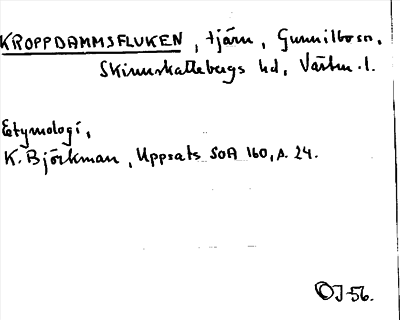 KROPPDAMMSFLUKEN, tjärn, Gunnilbo sn,
Skinnskattebergs hd, Västm. l.
Etymologi,
K. Björkman, Uppsats SOA 160, s. 24.
OJ-56.